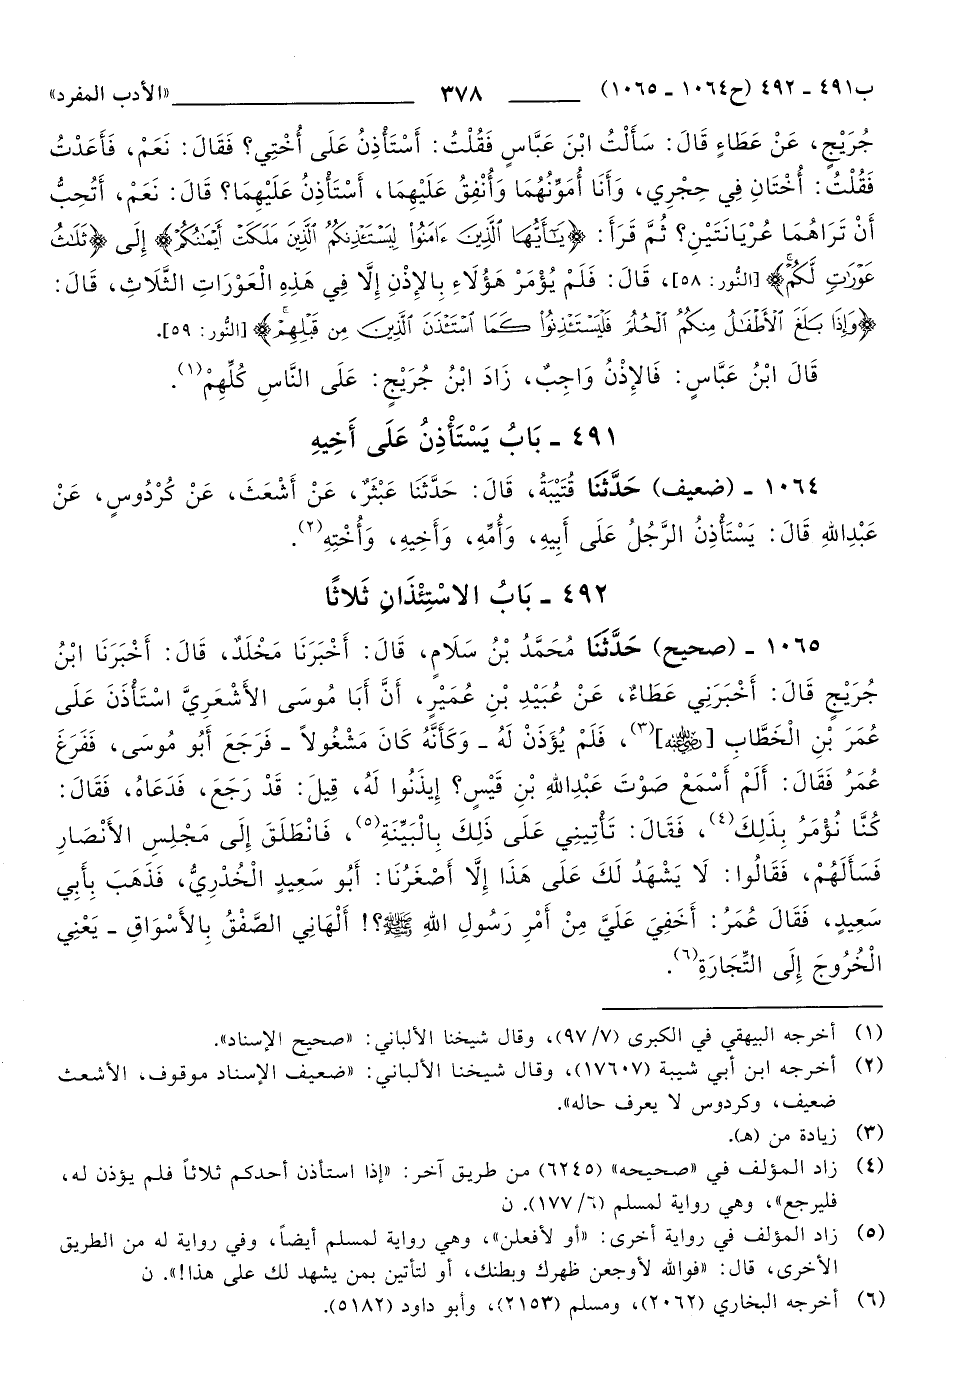 ب٤٩١ - ٤٩٢ (ح١٠٦٤ - ١٠٦٥) ٣٧٨ «الأدب المفرد»
جُرَيْجٍ، عَنْ عَطَاءٍ قَالَ: سَأَلْتُ ابْنَ عَبَّاسٍ فَقُلْتُ: أَسْتَأْذِنُ عَلَى أُخْتِي؟ فَقَالَ: نَعَمْ، فَأَعَدْتُ
فَقُلْتُ: أُخْتَانِ فِي حِجْرِي، وَأَنَا أُمَوِّنُهُمَا وَأُنْفِقُ عَلَيْهِمَا، أَسْتَأْذِنُ عَلَيْهِمَا؟ قَالَ: نَعَمْ، أَتُحِبُّ
أَنْ تَرَاهُمَا عُرْيَانَتَيْنِ؟ ثُمَّ قَرَأَ: ﴿يَـٰٓأَيُّهَا ٱلَّذِينَ ءَامَنُوا۟ لِيَسْتَـْٔذِنكُمُ ٱلَّذِينَ مَلَكَتْ أَيْمَـٰنُكُمْ﴾ إِلَى ﴿ثَلَـٰثُ
عَوْرَٰتٍ لَّكُمْ﴾ [النُّور: ٥٨]، قَالَ: فَلَمْ يُؤْمَرْ هَؤُلَاءِ بِالإِذْنِ إِلَّا فِي هَذِهِ الْعَوْرَاتِ الثَّلَاثِ، قَالَ:
﴿وَإِذَا بَلَغَ ٱلْأَطْفَـٰلُ مِنكُمُ ٱلْحُلُمَ فَلْيَسْتَـْٔذِنُوا۟ كَمَا ٱسْتَـْٔذَنَ ٱلَّذِينَ مِن قَبْلِهِمْ﴾ [النُّور: ٥٩].
قَالَ ابْنُ عَبَّاسٍ: فَالإِذْنُ وَاجِبٌ، زَادَ ابْنُ جُرَيْجٍ: عَلَى النَّاسِ كُلِّهِمْ(١).
٤٩١ - بَابُ يَسْتَأْذِنُ عَلَى أَخِيهِ
١٠٦٤ - (ضعيف) حَدَّثَنَا قُتَيْبَةُ، قَالَ: حَدَّثَنَا عَبْثَرٌ، عَنْ أَشْعَثَ، عَنْ كُرْدُوسٍ، عَنْ
عَبْدِاللهِ قَالَ: يَسْتَأْذِنُ الرَّجُلُ عَلَى أَبِيهِ، وَأُمِّهِ، وَأَخِيهِ، وَأُخْتِهِ(٢).
٤٩٢ - بَابُ الاسْتِئْذَانِ ثَلَاثًا
١٠٦٥ - (صحيح) حَدَّثَنَا مُحَمَّدُ بْنُ سَلَامٍ، قَالَ: أَخْبَرَنَا مَخْلَدٌ، قَالَ: أَخْبَرَنَا ابْنُ
جُرَيْجٍ قَالَ: أَخْبَرَنِي عَطَاءٌ، عَنْ عُبَيْدِ بْنِ عُمَيْرٍ، أَنَّ أَبَا مُوسَى الأَشْعَرِيَّ اسْتَأْذَنَ عَلَى
عُمَرَ بْنِ الْخَطَّابِ [رضي الله عنه](٣)، فَلَمْ يُؤْذَنْ لَهُ - وَكَأَنَّهُ كَانَ مَشْغُولاً - فَرَجَعَ أَبُو مُوسَى، فَفَرَغَ
عُمَرُ فَقَالَ: أَلَمْ أَسْمَعْ صَوْتَ عَبْدِاللهِ بْنِ قَيْسٍ؟ إِيذَنُوا لَهُ، قِيلَ: قَدْ رَجَعَ، فَدَعَاهُ، فَقَالَ:
كُنَّا نُؤْمَرُ بِذَلِكَ(٤)، فَقَالَ: تَأْتِينِي عَلَى ذَلِكَ بِالْبَيِّنَةِ(٥)، فَانْطَلَقَ إِلَى مَجْلِسِ الأَنْصَارِ
فَسَأَلَهُمْ، فَقَالُوا: لَا يَشْهَدُ لَكَ عَلَى هَذَا إِلَّا أَصْغَرُنَا: أَبُو سَعِيدٍ الْخُدْرِيُّ، فَذَهَبَ بِأَبِي
سَعِيدٍ، فَقَالَ عُمَرُ: أَخَفِيَ عَلَيَّ مِنْ أَمْرِ رَسُولِ اللهِ ﷺ؟! أَلْهَانِي الصَّفْقُ بِالأَسْوَاقِ - يَعْنِي
الْخُرُوجَ إِلَى التِّجَارَةِ(٦).
(١) أخرجه البيهقي في الكبرى (٧/ ٩٧)، وقال شيخنا الألباني: «صحيح الإسناد».
(٢) أخرجه ابن أبي شيبة (١٧٦٠٧)، وقال شيخنا الألباني: «ضعيف الإسناد موقوف، الأشعث
ضعيف، وكردوس لا يعرف حاله».
(٣) زيادة من (هـ).
(٤) زاد المؤلف في «صحيحه» (٦٢٤٥) من طريق آخر: «إذا استأذن أحدكم ثلاثاً فلم يؤذن له،
فليرجع»، وهي رواية لمسلم (٦/ ١٧٧). ن
(٥) زاد المؤلف في رواية أخرى: «أو لأفعلن»، وهي رواية لمسلم أيضاً، وفي رواية له من الطريق
الأخرى، قال: «فوالله لأوجعن ظهرك وبطنك، أو لتأتين بمن يشهد لك على هذا!». ن
(٦) أخرجه البخاري (٢٠٦٢)، ومسلم (٢١٥٣)، وأبو داود (٥١٨٢).